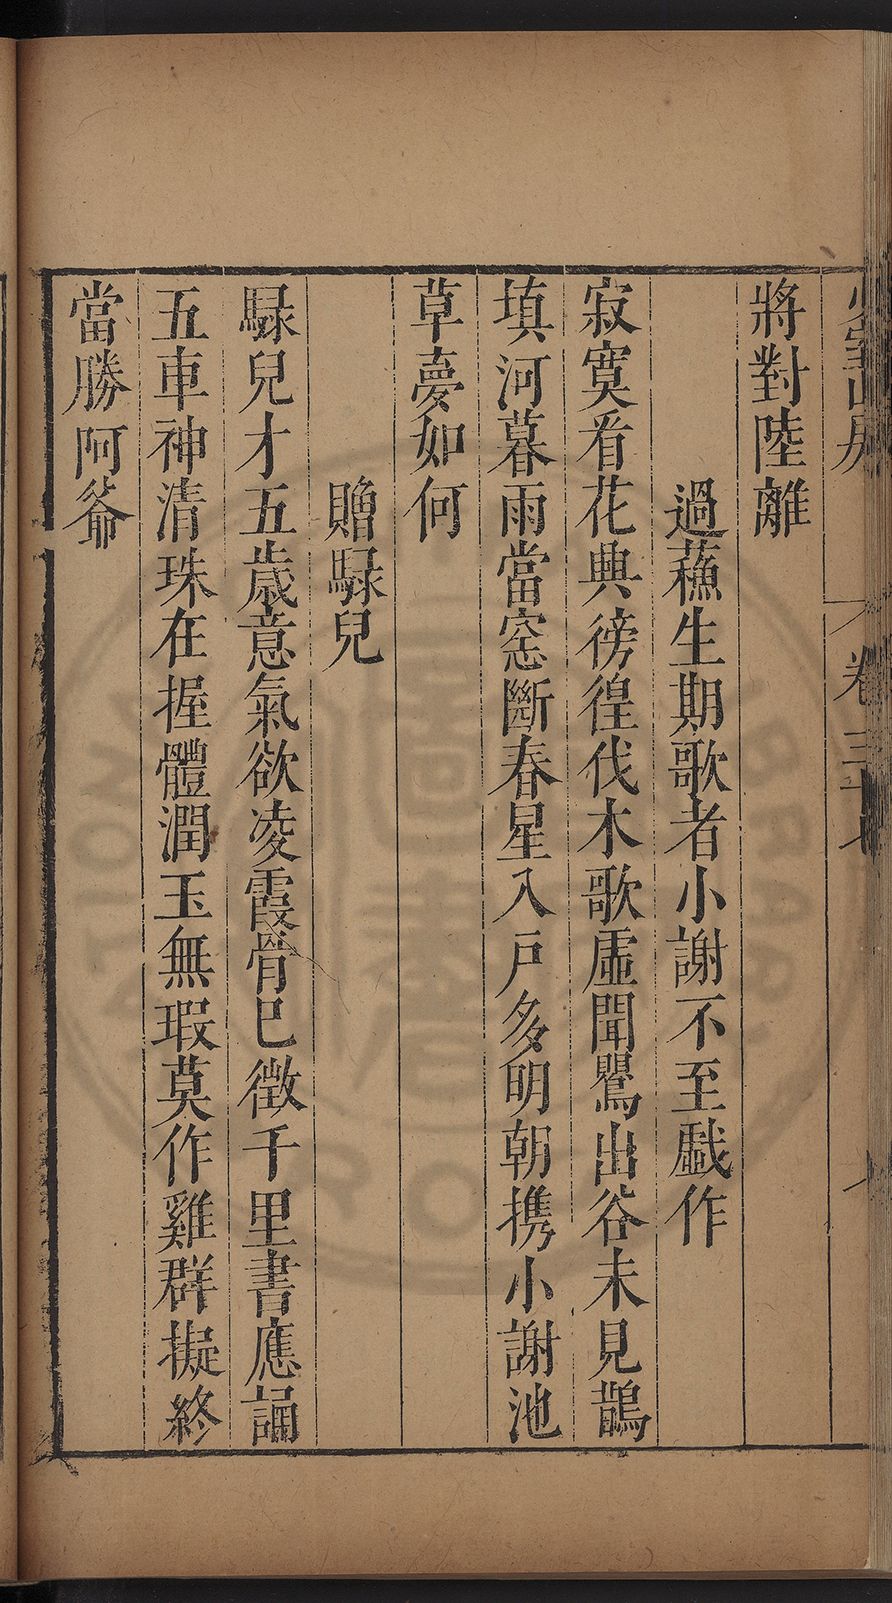 少室山房
卷三十七
將對陸離
過蘓生期歌者小謝不至戱作
寂寞看花興徬徨伐木歌虛聞鸎出谷未見鵲
填河暮雨當窓斷春星入戶多明朝携小謝池
草夢如何
贈騄兒
騄兒才五歲意氣欲凌霞骨巳徵千里書應誦
五車神清珠在握體潤玉無瑕莫作雞群擬終
當勝阿爺